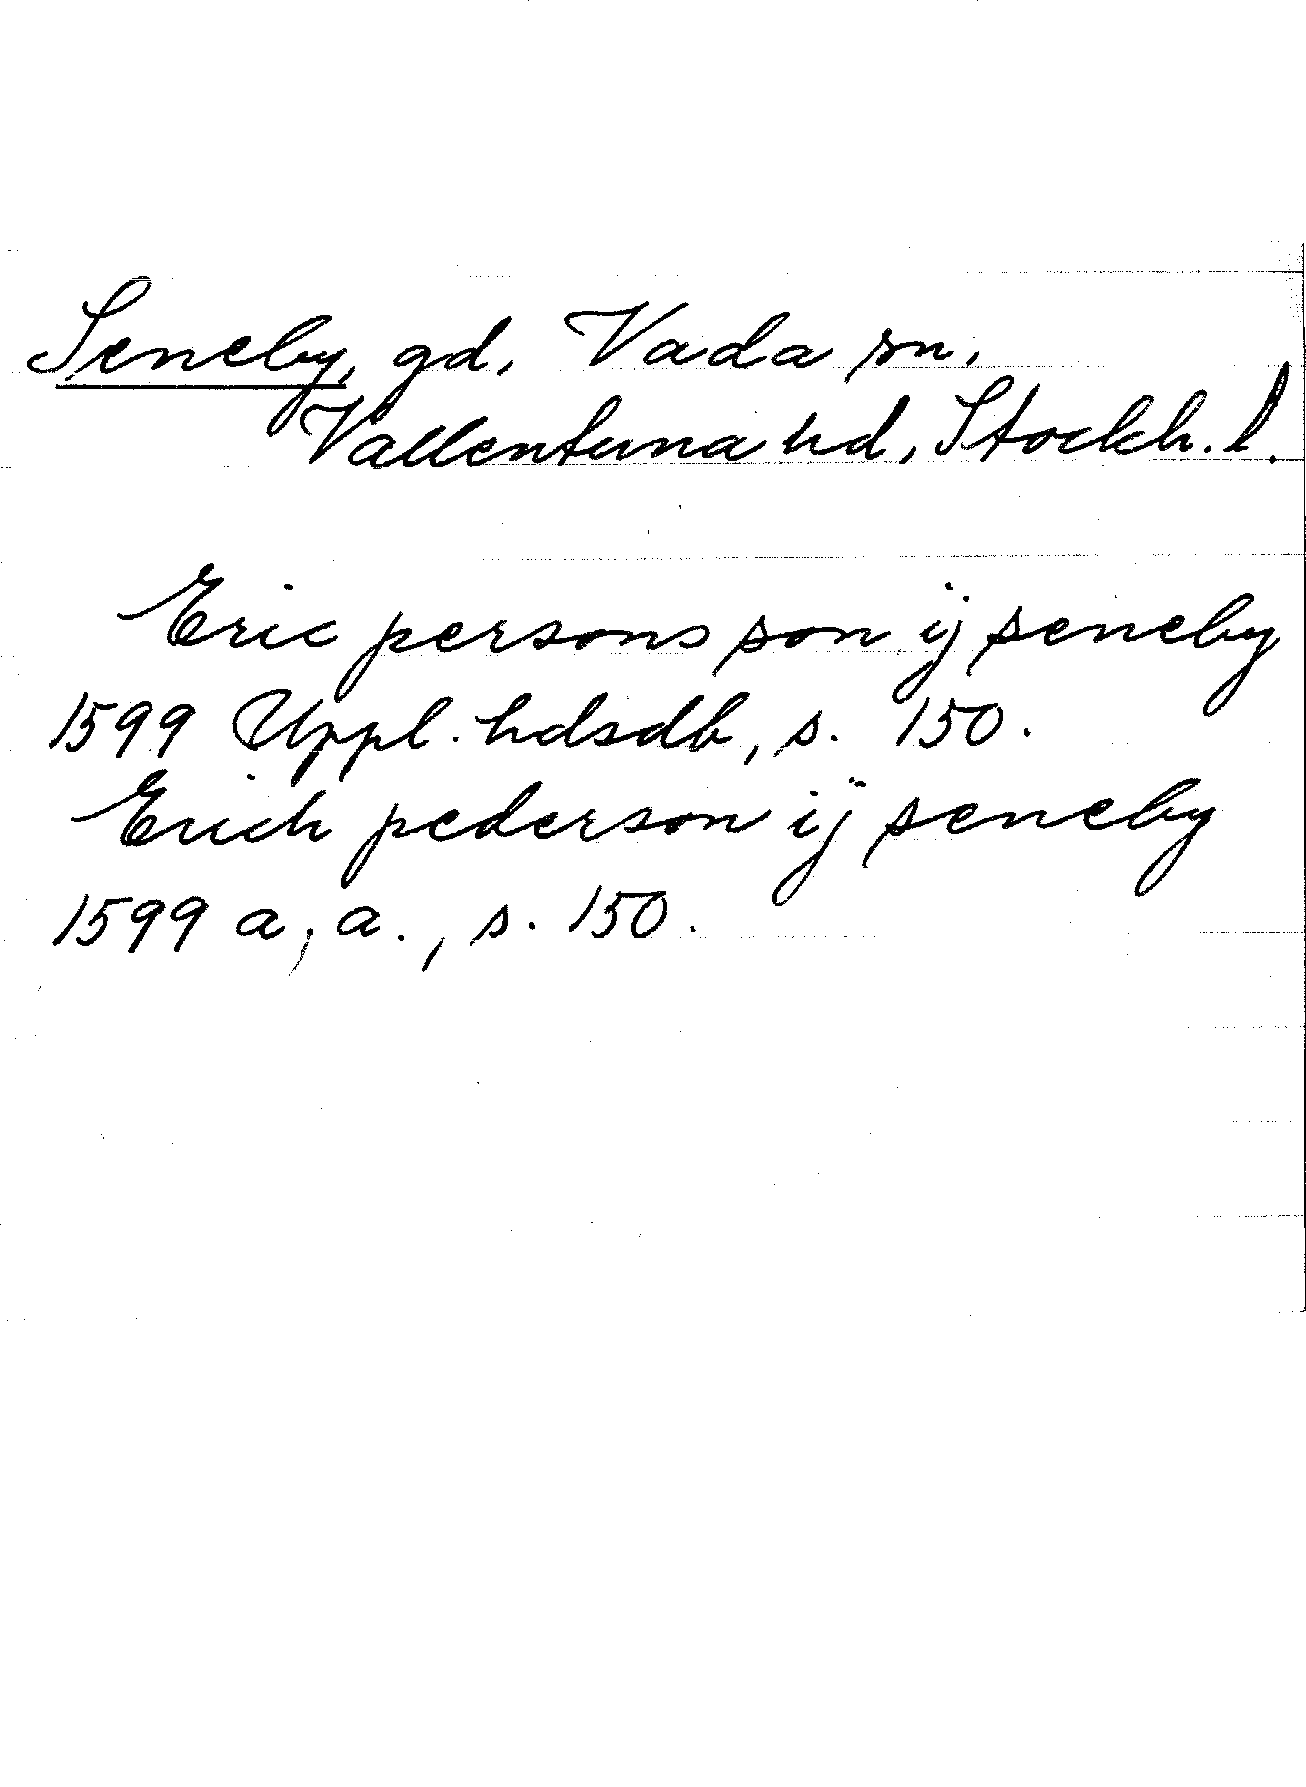 Seneby, gd, Vada sn,
Vallentuna hd, Stockh. l.
Eric persons son ij seneby
1599 Uppl. hdsdb, s. 150.
Erich pederson ij seneby
1599 a, a., s. 150.